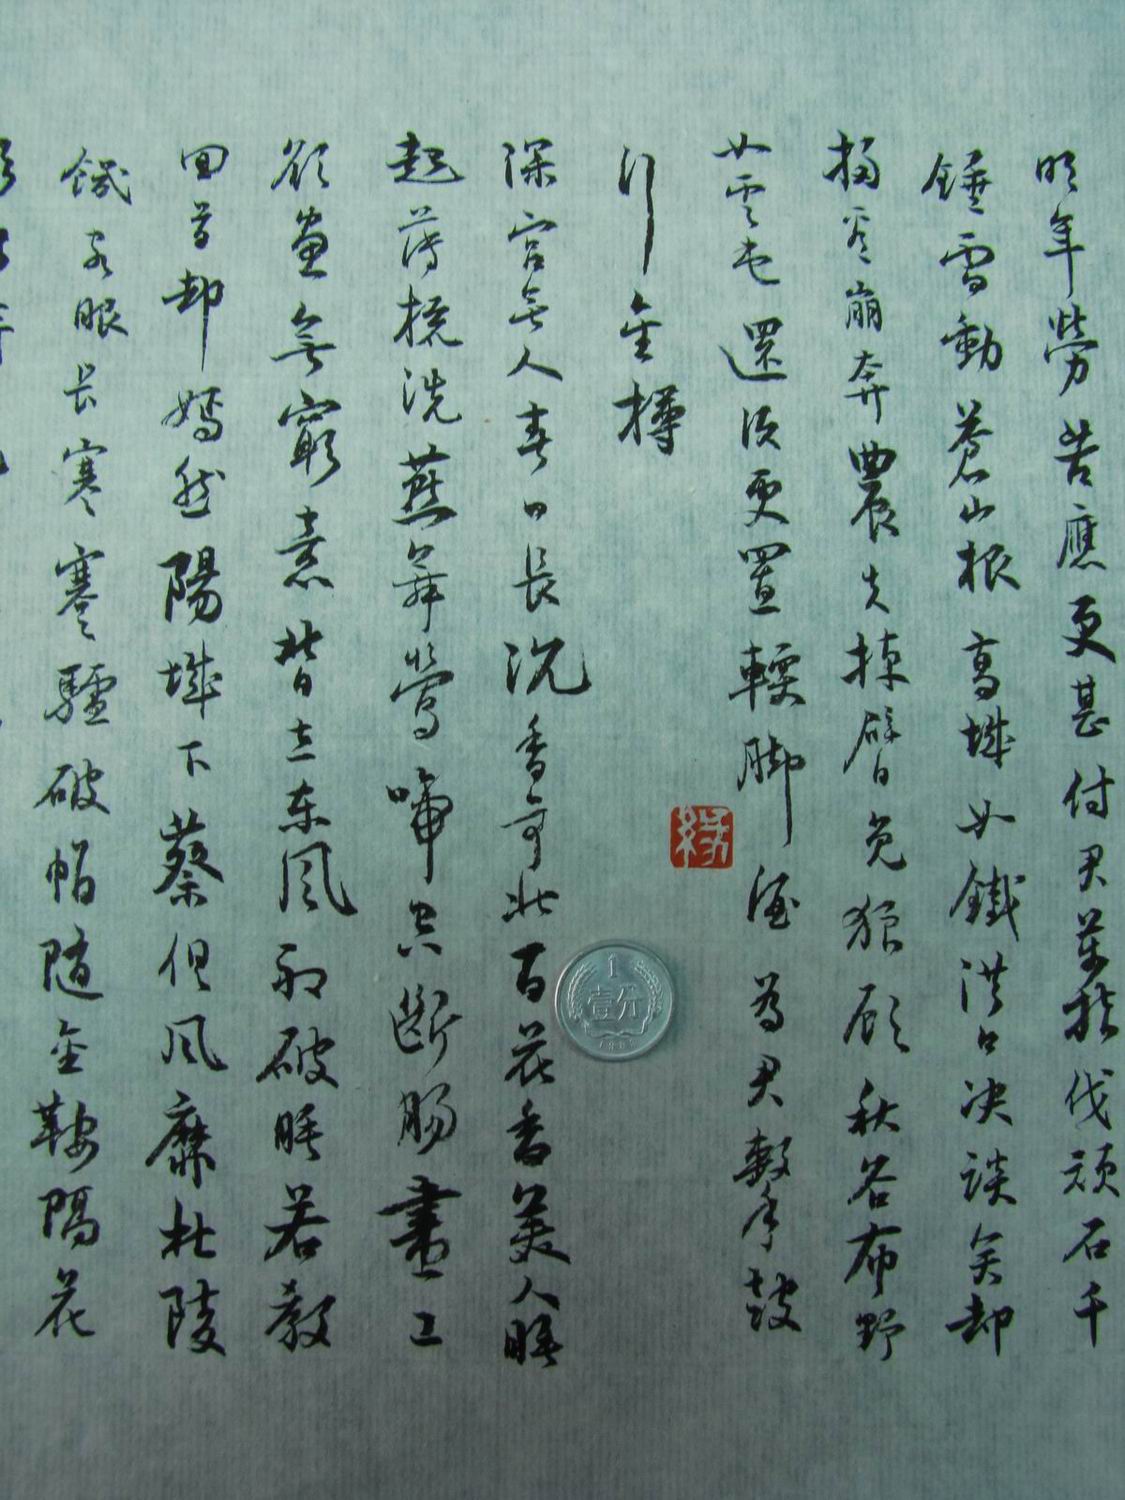 明年勞苦應更甚付君萬指伐頑石千
錘雷動蒼山根高城如鐵洪口决談笑却
掃看崩奔農夫掉臂免狼顧秋谷布野
如雲屯還須更置輭脚酒為君擊鼓
行金樽
深宮無人春日長沉香亭北百花香美人睡
起薄梳洗燕舞鶯啼空斷腸畫工
欲畫無窮意背立東風初破睡若教
回首却嫣然陽城下蔡俱風靡杜陵
饑客眼長寒蹇驢破帽隨金鞍隔花
緣
1
壹分